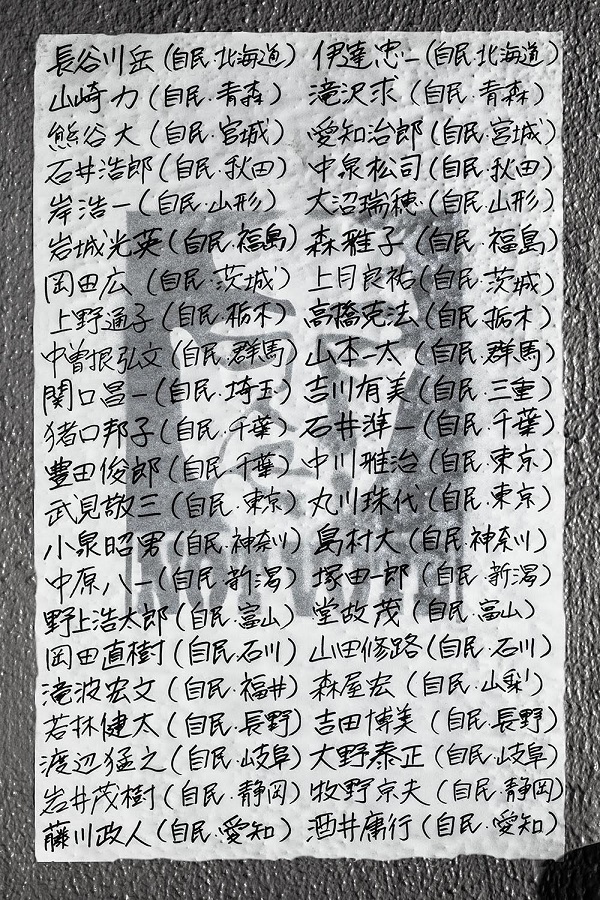 長谷川岳(自民・北海道) 伊達忠一(自民・北海道)
山崎力(自民・青森) 滝沢求(自民・青森)
熊谷大(自民・宮城) 愛知治郎(自民・宮城)
石井浩郎(自民・秋田) 中泉松司(自民・秋田)
岸浩一(自民・山形) 大沼瑞穂(自民・山形)
岩城光英(自民・福島) 森雅子(自民・福島)
岡田広(自民・茨城) 上月良祐(自民・茨城)
上野通子(自民・栃木) 高橋克法(自民・栃木)
中曽根弘文(自民・群馬) 山本一太(自民・群馬)
関口昌一(自民・埼玉) 吉川有美(自民・三重)
猪口邦子(自民・千葉) 石井準一(自民・千葉)
豊田俊郎(自民・千葉) 中川雅治(自民・東京)
武見敬三(自民・東京) 丸川珠代(自民・東京)
小泉昭男(自民・神奈川) 島村大(自民・神奈川)
中原八一(自民・新潟) 塚田一郎(自民・新潟)
野上浩太郎(自民・富山) 堂故茂(自民・富山)
岡田直樹(自民・石川) 山田修路(自民・石川)
滝波宏文(自民・福井) 森屋宏(自民・山梨)
若林健太(自民・長野) 吉田博美(自民・長野)
渡辺猛之(自民・岐阜) 大野泰正(自民・岐阜)
岩井茂樹(自民・静岡) 牧野京夫(自民・静岡)
藤川政人(自民・愛知) 酒井庸行(自民・愛知)